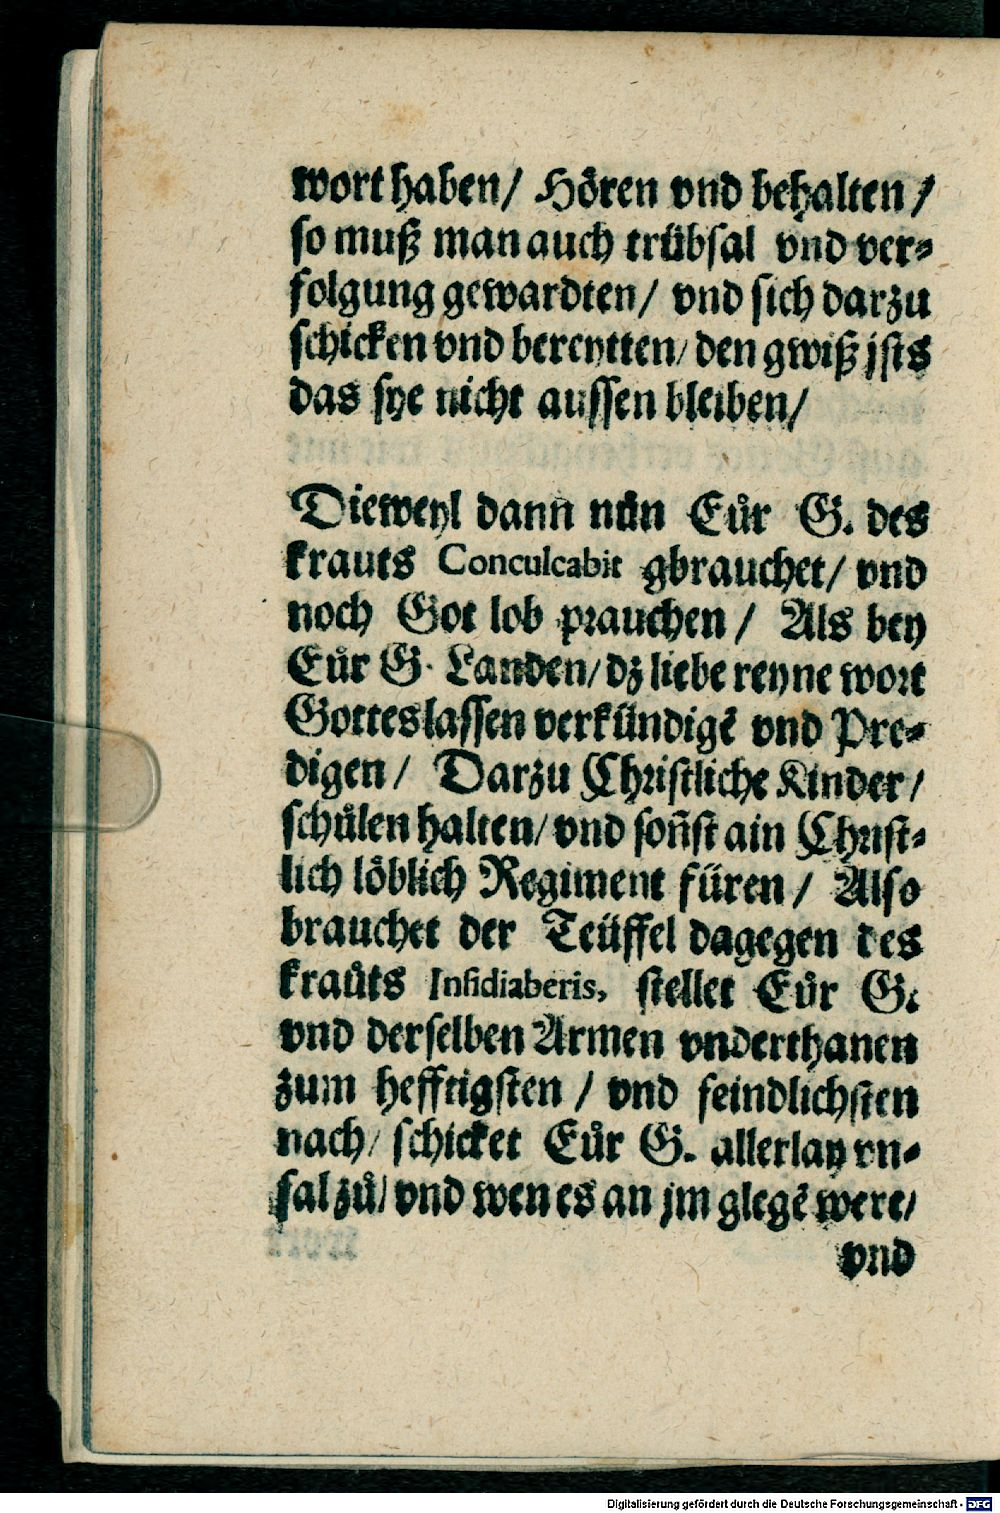 wort haben/ Hoͤren vnd behalten/
so muß man auch truͤbsal vnd ver⸗
folgung gewardten/ vnd sich darzu
schicken vnd bereytten/ den gwiß jsts
das sye nicht aussen bleiben/
Dieweyl dann nůn Eůr G. des
krauts Conculcabit gbrauchet/ vnd
noch Got lob prauchen/ Als bey
Eůr G. Landen/ dz liebe reyne wort
Gottes lassen verkündigē vnd Pre⸗
digen/ Darzu Christliche Kinder/
schůlen halten/ vnd soñst ain Christ⸗
lich loͤblich Regiment füren/ Also
brauchet der Teüffel dagegen des
kraůts Insidiaberis, stellet Eůr G.
vnd derselben Armen vnderthanen
zum hefftigsten/ vnd feindlichsten
nach/ schicket Eůr G. allerlay vn⸗
fal zů/ vnd wen es an jm glegē were/
vnd
Digitalisierung gefördert durch die Deutsche Forschungsgemeinschaft - DFG